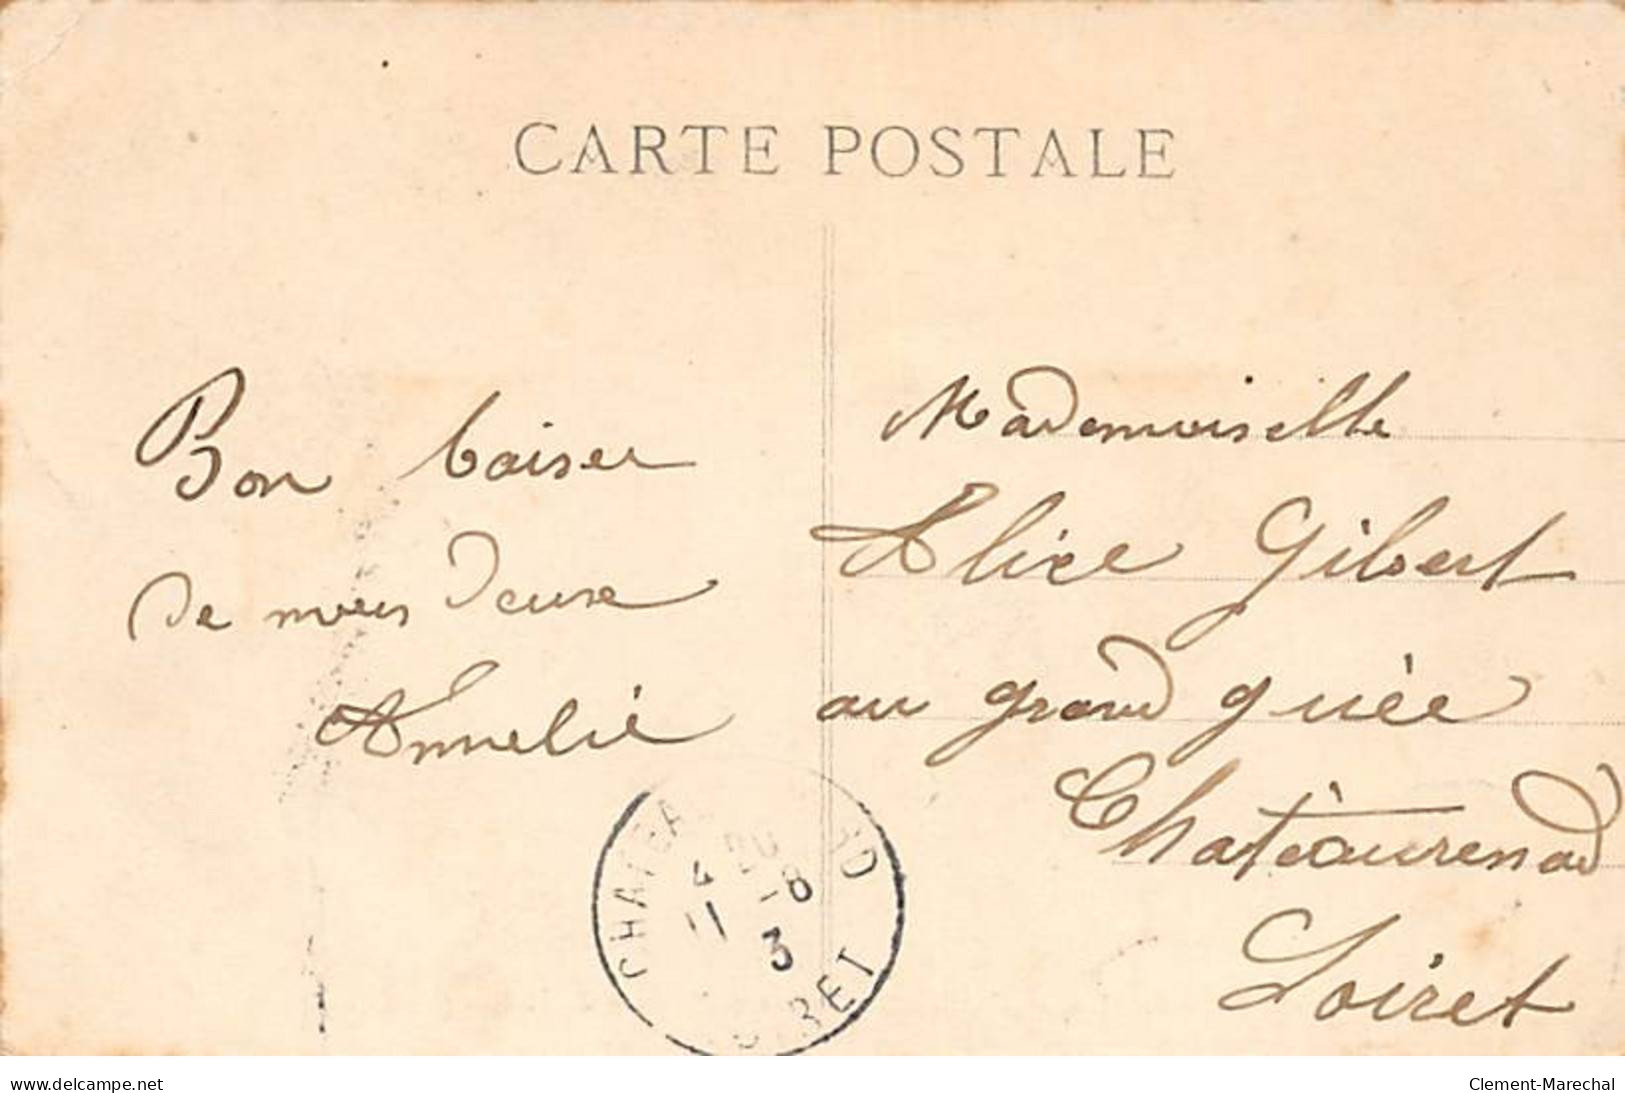 CARTE POSTALE
Bon baiser
de nous deuse
Annelie
Mademoiselle
Alice Gibert
au grand guée
Chatèaurenad
Loiret
CHATEA RD
4 20
-8
11 3
RET
www.delcampe.net
Clement-Marechal